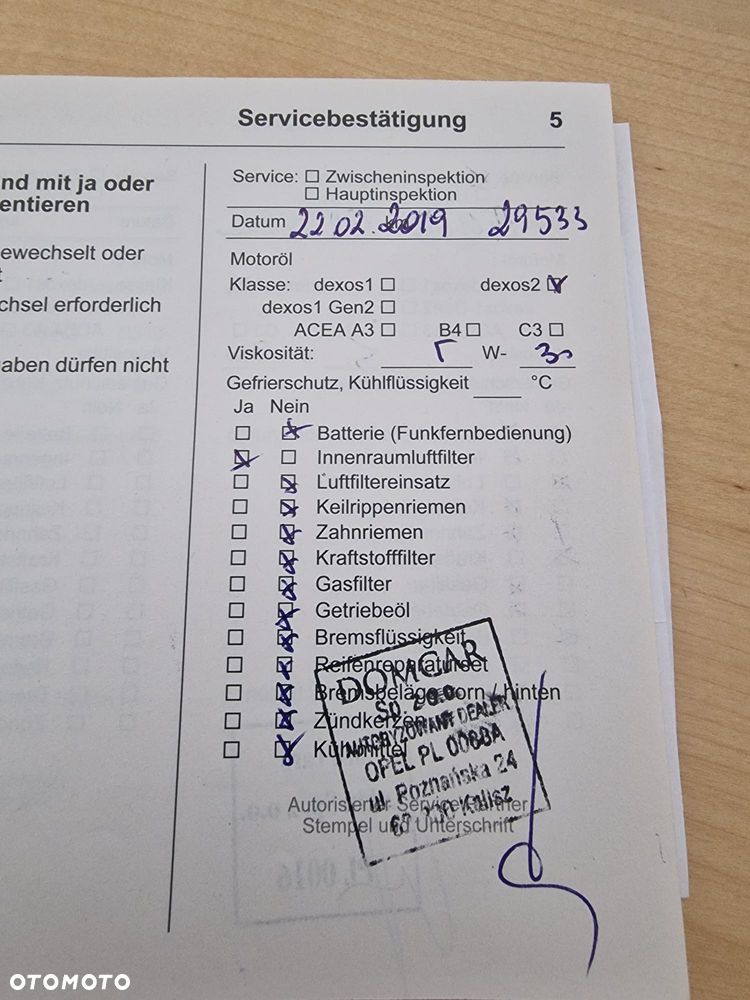 Servicebestätigung 5
nd mit ja oder
entieren
ewechselt oder
t
chsel erforderlich
aben dürfen nicht
Service: ☐ Zwischeninspektion
☐ Hauptinspektion
Datum 22 02. 2019 29533
Motoröl
Klasse: dexos1 ☐ dexos2 ☑
dexos1 Gen2 ☐
ACEA A3 ☐ B4 ☐ C3 ☐
Viskosität: 5 W- 30
Gefrierschutz, Kühlflüssigkeit ____ °C
Ja Nein
☐ ☒ Batterie (Funkfernbedienung)
☒ ☐ Innenraumluftfilter
☐ ☒ Luftfiltereinsatz
☐ ☒ Keilrippenriemen
☐ ☒ Zahnriemen
☐ ☒ Kraftstofffilter
☐ ☒ Gasfilter
☐ ☒ Getriebeöl
☐ ☒ Bremsflüssigkeit
☐ ☒ Reifenreparaturset
☐ ☒ Bremsbeläge vorn / hinten
☐ ☒ Zündkerzen
☐ ☒ Kühlmittel
DOMCAR
Sp. z o.o.
AUTORYZOWANY DEALER
OPEL PL 0068A
ul. Poznańska 24
Kalisz
Autorisierter Servicepartner
Stempel und Unterschrift
OTOMOTO